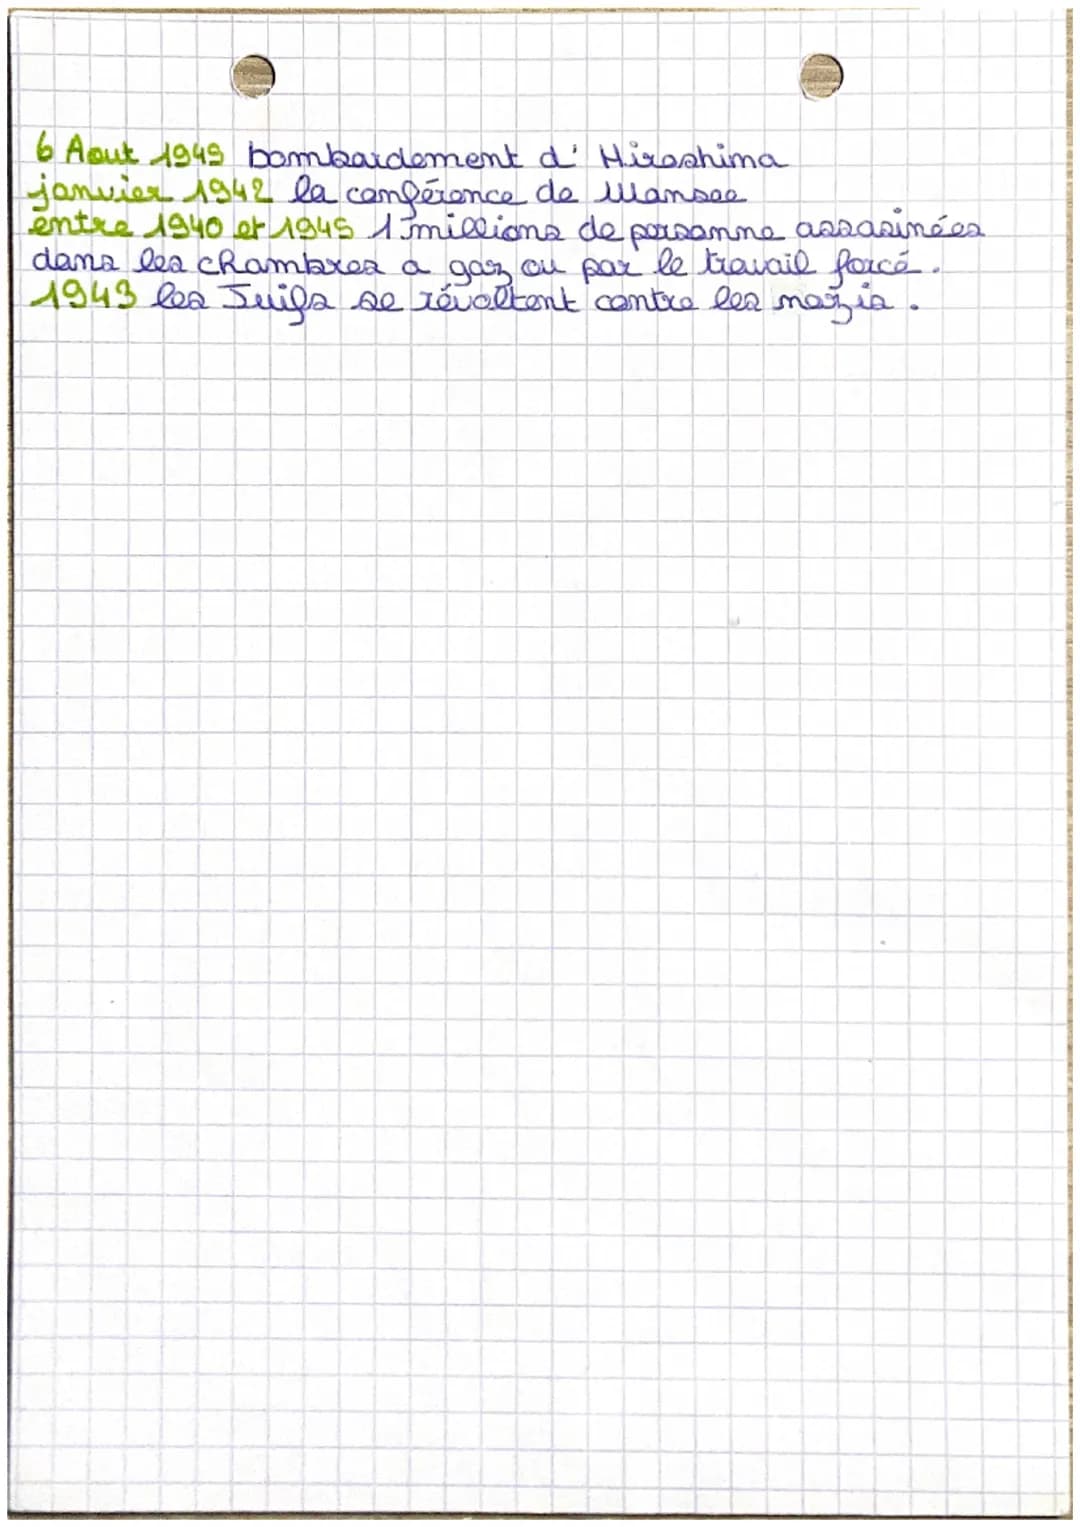 6 Aout 1945 bombardement d' Hiroshima
janvier 1942 la conférence de Wansee
entre 1940 et 1945 15 millions de personne assasinées
dans les chambres a gaz ou par le travail forcé.
1943 les Juifs se révoltent contre les nazis.